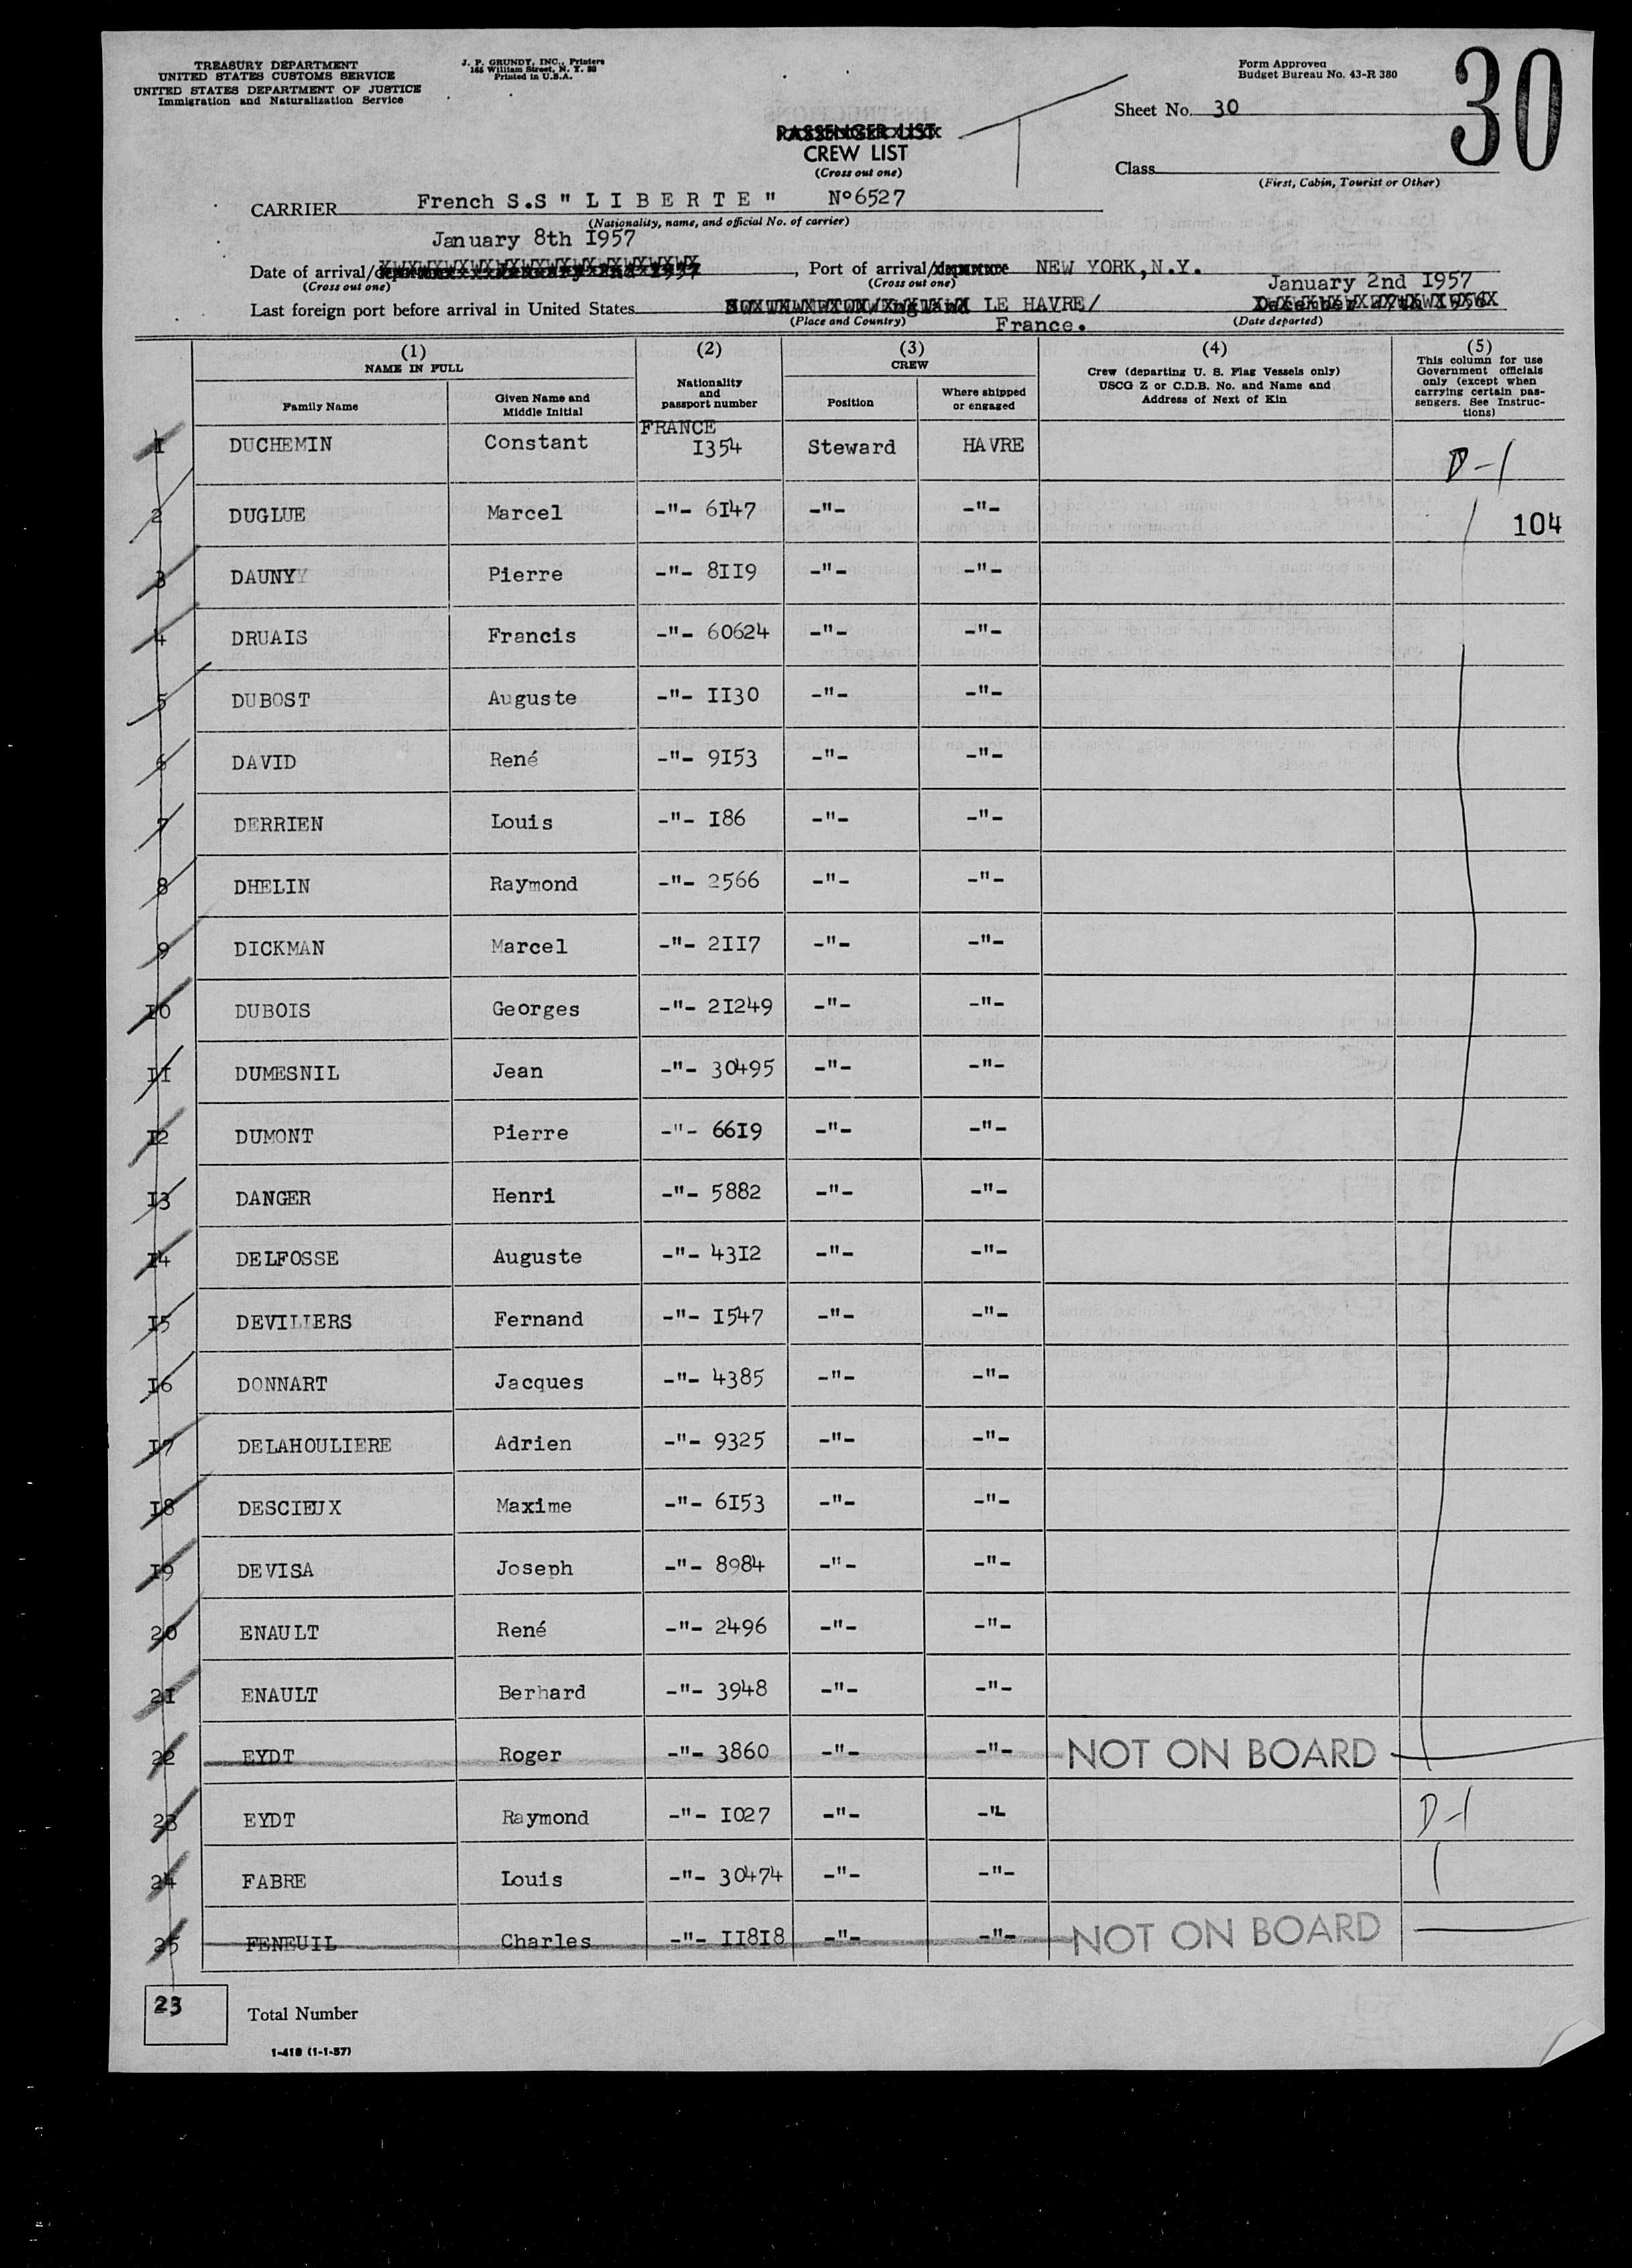 TREASURY DEPARTMENT
UNITED STATES CUSTOMS SERVICE
UNITED STATES DEPARTMENT OF JUSTICE
Immigration and Naturalization Service
J. P. GRUNDY, INC., Printers
Printed in U.S.A.
Form Approved
Budget Bureau No. 43-R 380
30
Sheet No. 30
PASSENGER LIST
CREW LIST
(Cross out one)
Class
(First, Cabin, Tourist or Other)
CARRIER French S.S " L I B E R T E " N°6527
(Nationality, name, and official No. of carrier)
January 8th I957
Date of arrival/departure, Port of arrival/departure NEW YORK,N.Y.
(Cross out one) (Cross out one)
January 2nd I957
Last foreign port before arrival in United States LE HAVRE/
(Place and Country) France. (Date departed)
(1) NAME IN FULL (2) (3) CREW (4) (5)
Family Name Given Name and Middle Initial Nationality and passport number Position Where shipped or engaged Crew (departing U. S. Flag Vessels only) USCG Z or C.D.B. No. and Name and Address of Next of Kin This column for use Government officials only (except when carrying certain passengers. See Instructions)
FRANCE
I DUCHEMIN Constant I354 Steward HAVRE D-1
2 DUGLUE Marcel -"- 6I47 -"- -"- 104
3 DAUNYY Pierre -"- 8II9 -"- -"-
4 DRUAIS Francis -"- 60624 -"- -"-
5 DUBOST Auguste -"- II30 -"- -"-
6 DAVID René -"- 9I53 -"- -"-
7 DERRIEN Louis -"- I86 -"- -"-
8 DHELIN Raymond -"- 2566 -"- -"-
9 DICKMAN Marcel -"- 2II7 -"- -"-
I0 DUBOIS Georges -"- 2I249 -"- -"-
II DUMESNIL Jean -"- 30495 -"- -"-
I2 DUMONT Pierre -"- 66I9 -"- -"-
I3 DANGER Henri -"- 5882 -"- -"-
I4 DELFOSSE Auguste -"- 43I2 -"- -"-
I5 DEVILIERS Fernand -"- I547 -"- -"-
I6 DONNART Jacques -"- 4385 -"- -"-
I7 DELAHOULIERE Adrien -"- 9325 -"- -"-
I8 DESCIEUX Maxime -"- 6I53 -"- -"-
I9 DEVISA Joseph -"- 8984 -"- -"-
20 ENAULT René -"- 2496 -"- -"-
2I ENAULT Berhard -"- 3948 -"- -"-
22 EYDT Roger -"- 3860 -"- -"- NOT ON BOARD
23 EYDT Raymond -"- I027 -"- -"- D-1
24 FABRE Louis -"- 30474 -"- -"-
25 FENEUIL Charles -"- II8I8 -"- -"- NOT ON BOARD
23 Total Number
1-418 (1-1-57)